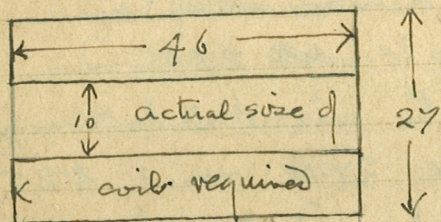 46
10 actual size of 27
coils required